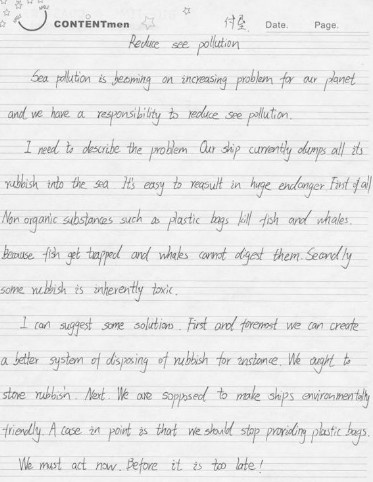 CONTENTmen 付莹 Date. Page.
Reduce see pollution
Sea pollution is becoming an increasing problem for our planet
and we have a responsibility to reduce see pollution.
I need to describe the problem Our ship currently dumps all its
rubbish into the sea It's easy to reqsult in huge endanger First of all
Non organic substances such as plastic bags kill fish and whales.
Because fish get trapped and whales cannot digest them. Secondly
some rubbish is inherently toxic.
I can suggest some solutions. First and foremost we can create
a better system of disposing of rubbish for instance. We ought to
store rubbish. Next We are sopposed to make ships environmentally
friendly. A case in point is that we should stop providing plastic bags.
We must act now. Before it is too late!